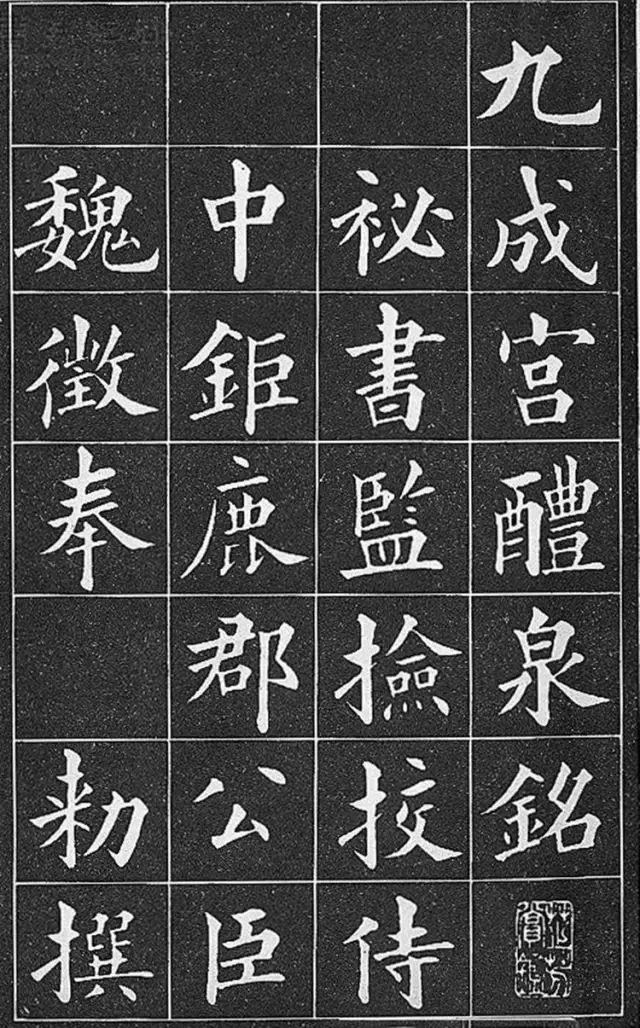 九成宫醴泉銘
祕書監撿挍侍
中鉅鹿郡公臣
魏徵奉勑撰